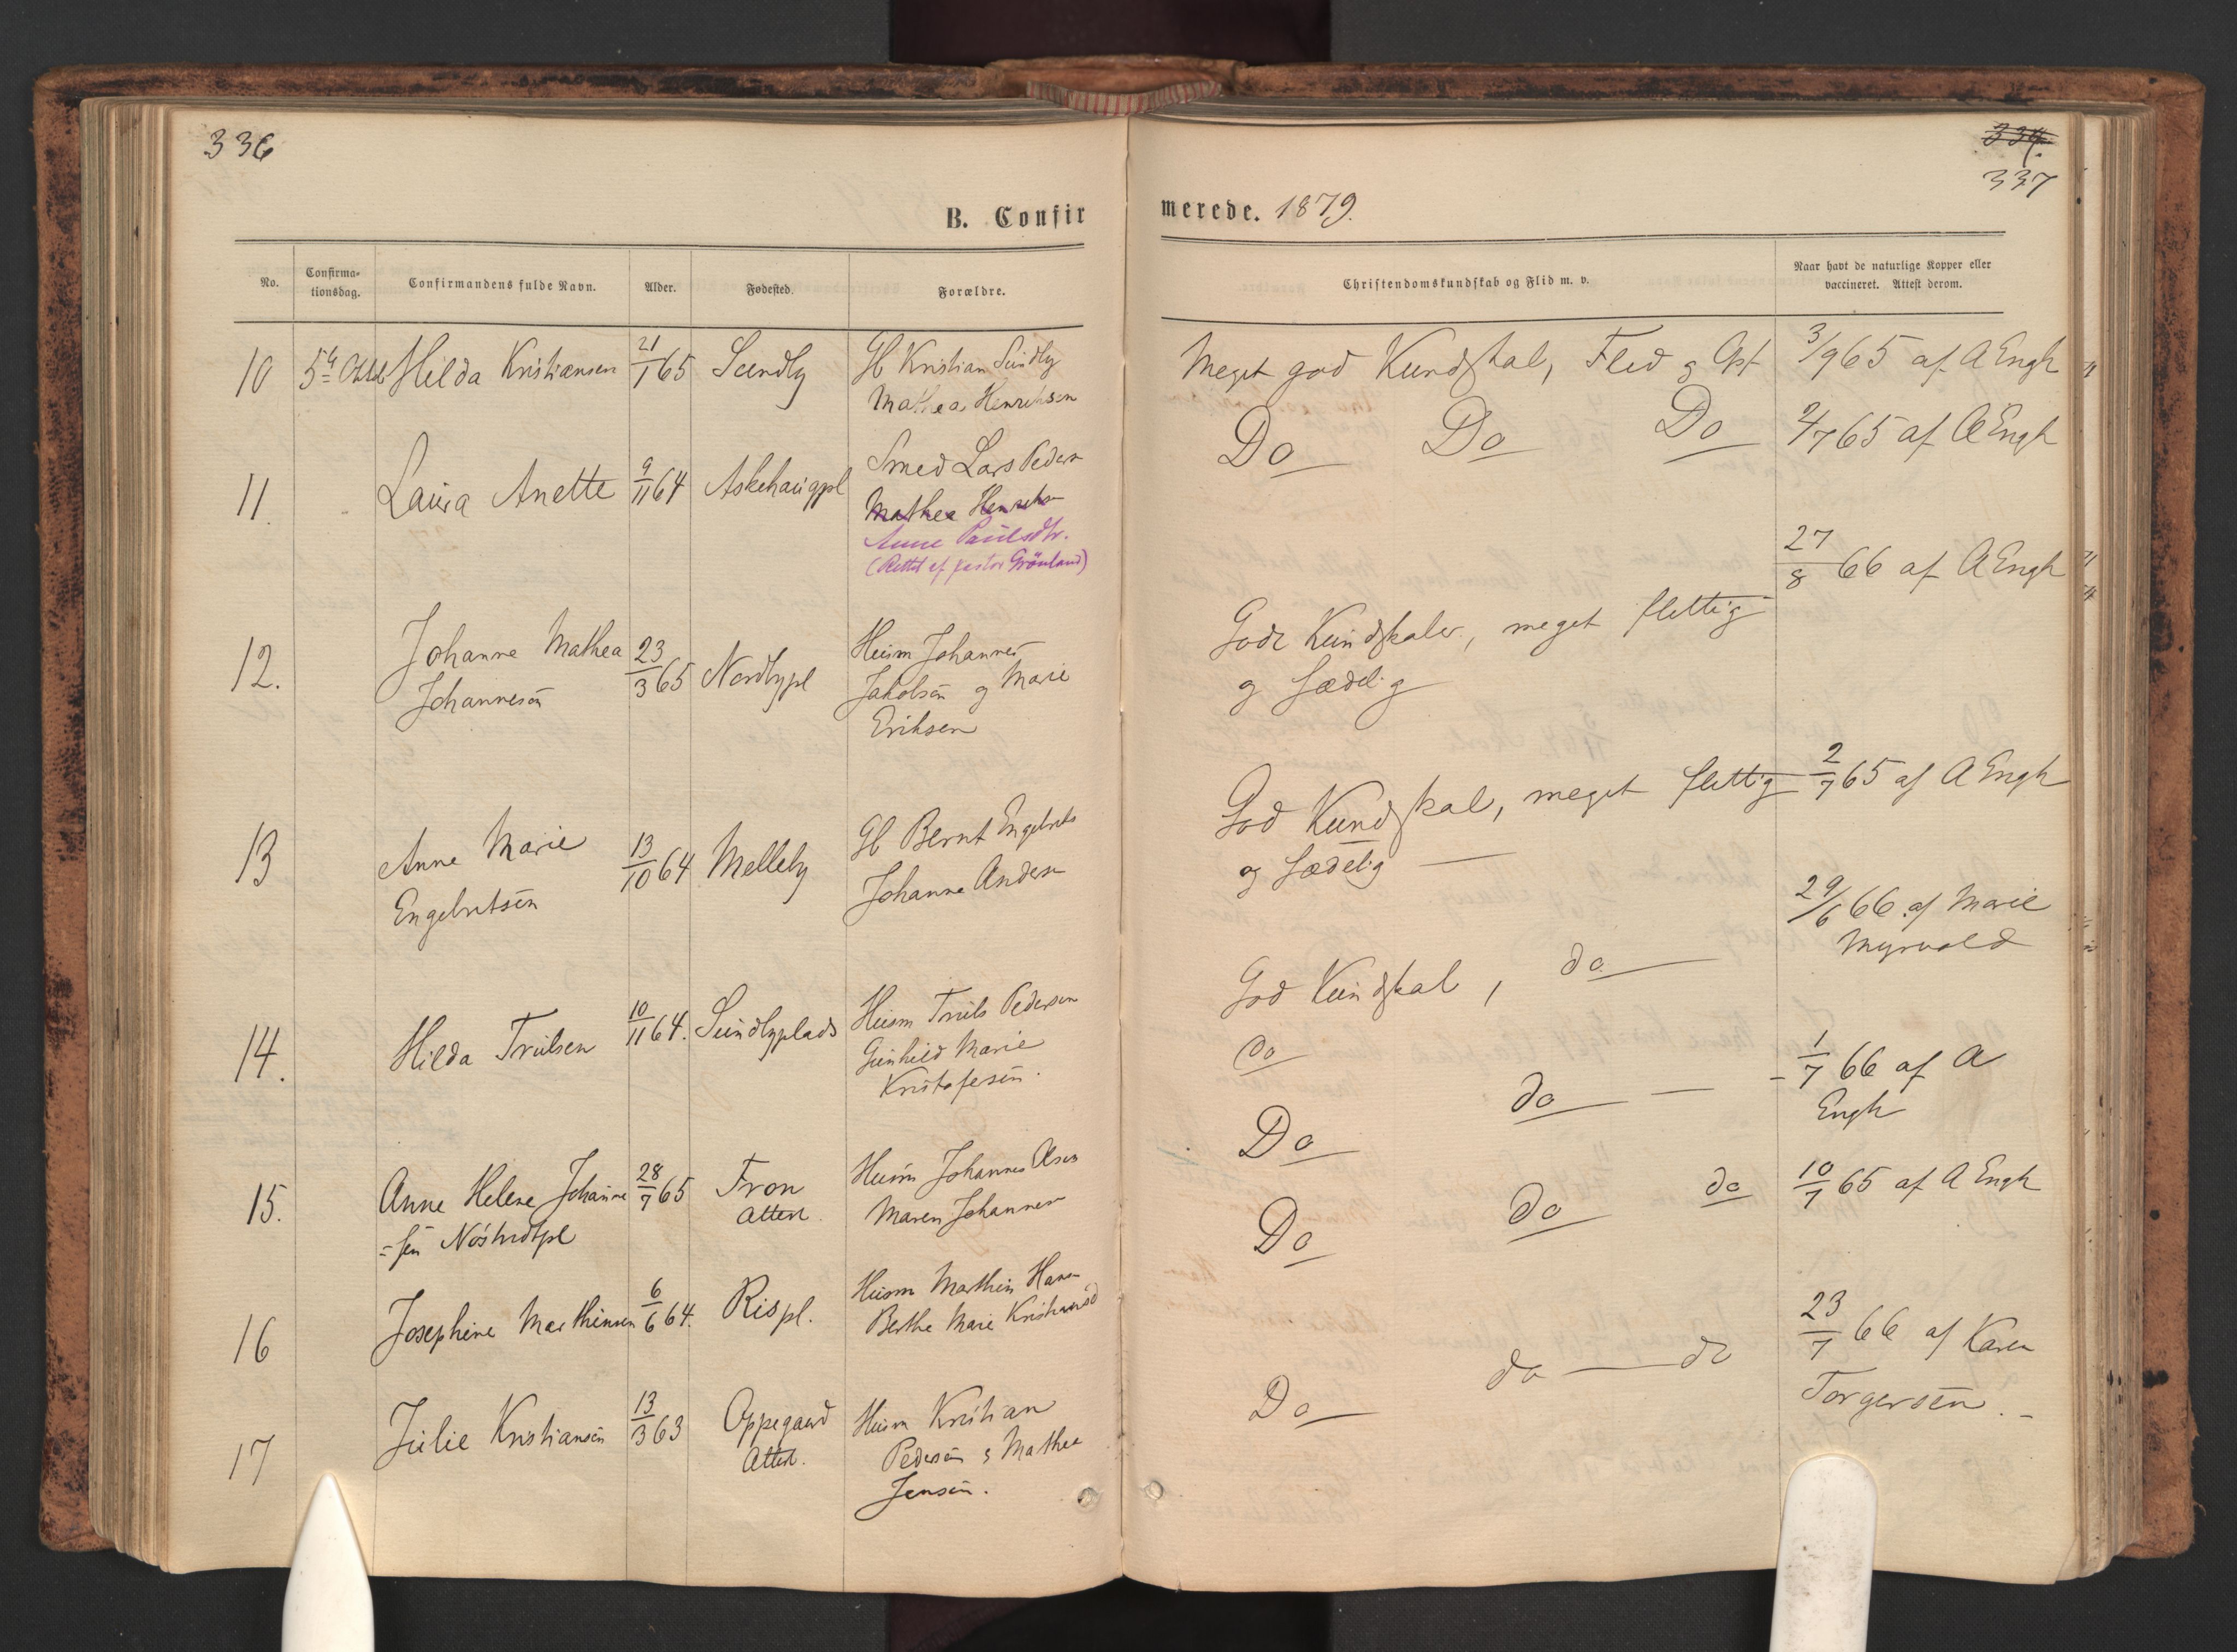 336
B. Confir
No.
Confirma-
tionsdag.
Confirmandens fulde Navn.
Alder.
Fødested.
Forældre.
10 5te Oktb Hilda Kristiansen 21/1 65 Sundby Gb Kristian Sundby
Mathea Henriksen
11. Laura Anette 9/11 64 Askehaugpl Smed Lars Peders
Mathea Henriks
Anne Paulsdtr.
(Rettet af pastor Grönland)
12. Johanne Mathea 23/3 65 Nordbypl Husm Johannes
Johannesen Jakobsen og Marie
Eriksen
13 Anne Marie 13/10 64 Melleby Gb Bernt Engebrets
Engebretsen Johanne Anders
14. Hilda Trulsen 10/11 64. Sundbyplads Husm Truls Pedersen
Gunhild Marie
Kristofersen.
15. Anne Helene Johanne 28/7 65 Fron Husm Johannes Olsen
=sen Nöstvedtpl Attest. Maren Johannesen
16 Josephine Marthinsen 6/6 64. Rispl. Husm Marthin Hansen
Berthe Marie Kristiansd
17 Julie Kristiansen 13/3 63 Oppegaard Husm Kristian
Attest. Pedersen & Mathea
Jensen.
334.
337
merede. 1879.
Christendomskundskab og Flid m. v.
Naar havt de naturlige Kopper eller
vaccineret. Attest derom.
Meget god Kundskab, Flid og Opf 3/9 65 af A Engh
Do Do Do 2/7 65 af A Engh
27/8 66 af A Engh
Gode Kundskaber, meget flittig
og sædelig
God Kundskab, meget flittig 2/7 65 af A Engh
og sædelig
29/6 66 af Marie
Myrvold
God Kundskab, do
do
1/7 66 af A
Engh
Do do
Do do do 10/7 65 af A Engh
23/7 66 af Karen
Torgersen. -
Do do do